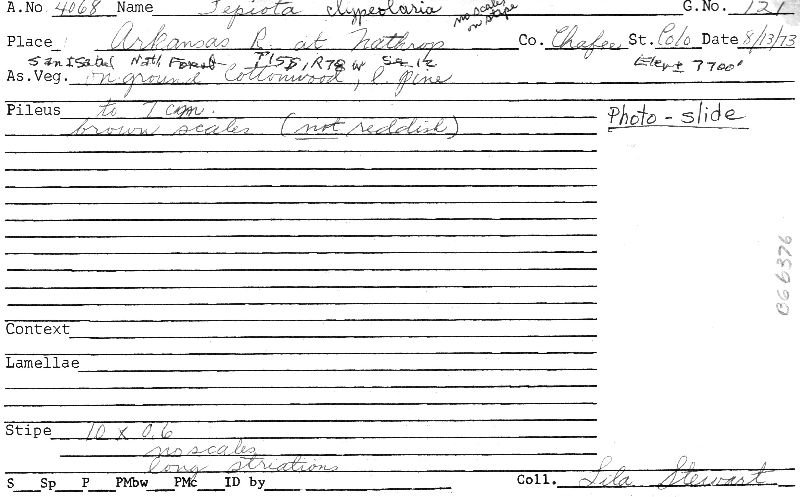 A.No 4068 Name Lepiota clypeolaria no scales on stipe G.No. 121
Place Arkansas R. at Nathrop Co. Chafee St. Colo Date 8/13/73
San Isabel Natl Forest T15S, R78W Sec 12 Elev ± 7700'
As.Veg. on ground Cottonwood, P. pine
Pileus to 7 cm.
brown scales (not reddish)
Photo - slide
066376
Context
Lamellae
Stipe 10 x 0.6
no scales
long striations
S Sp P PMbw PMc ID by Coll. Lila Stewart